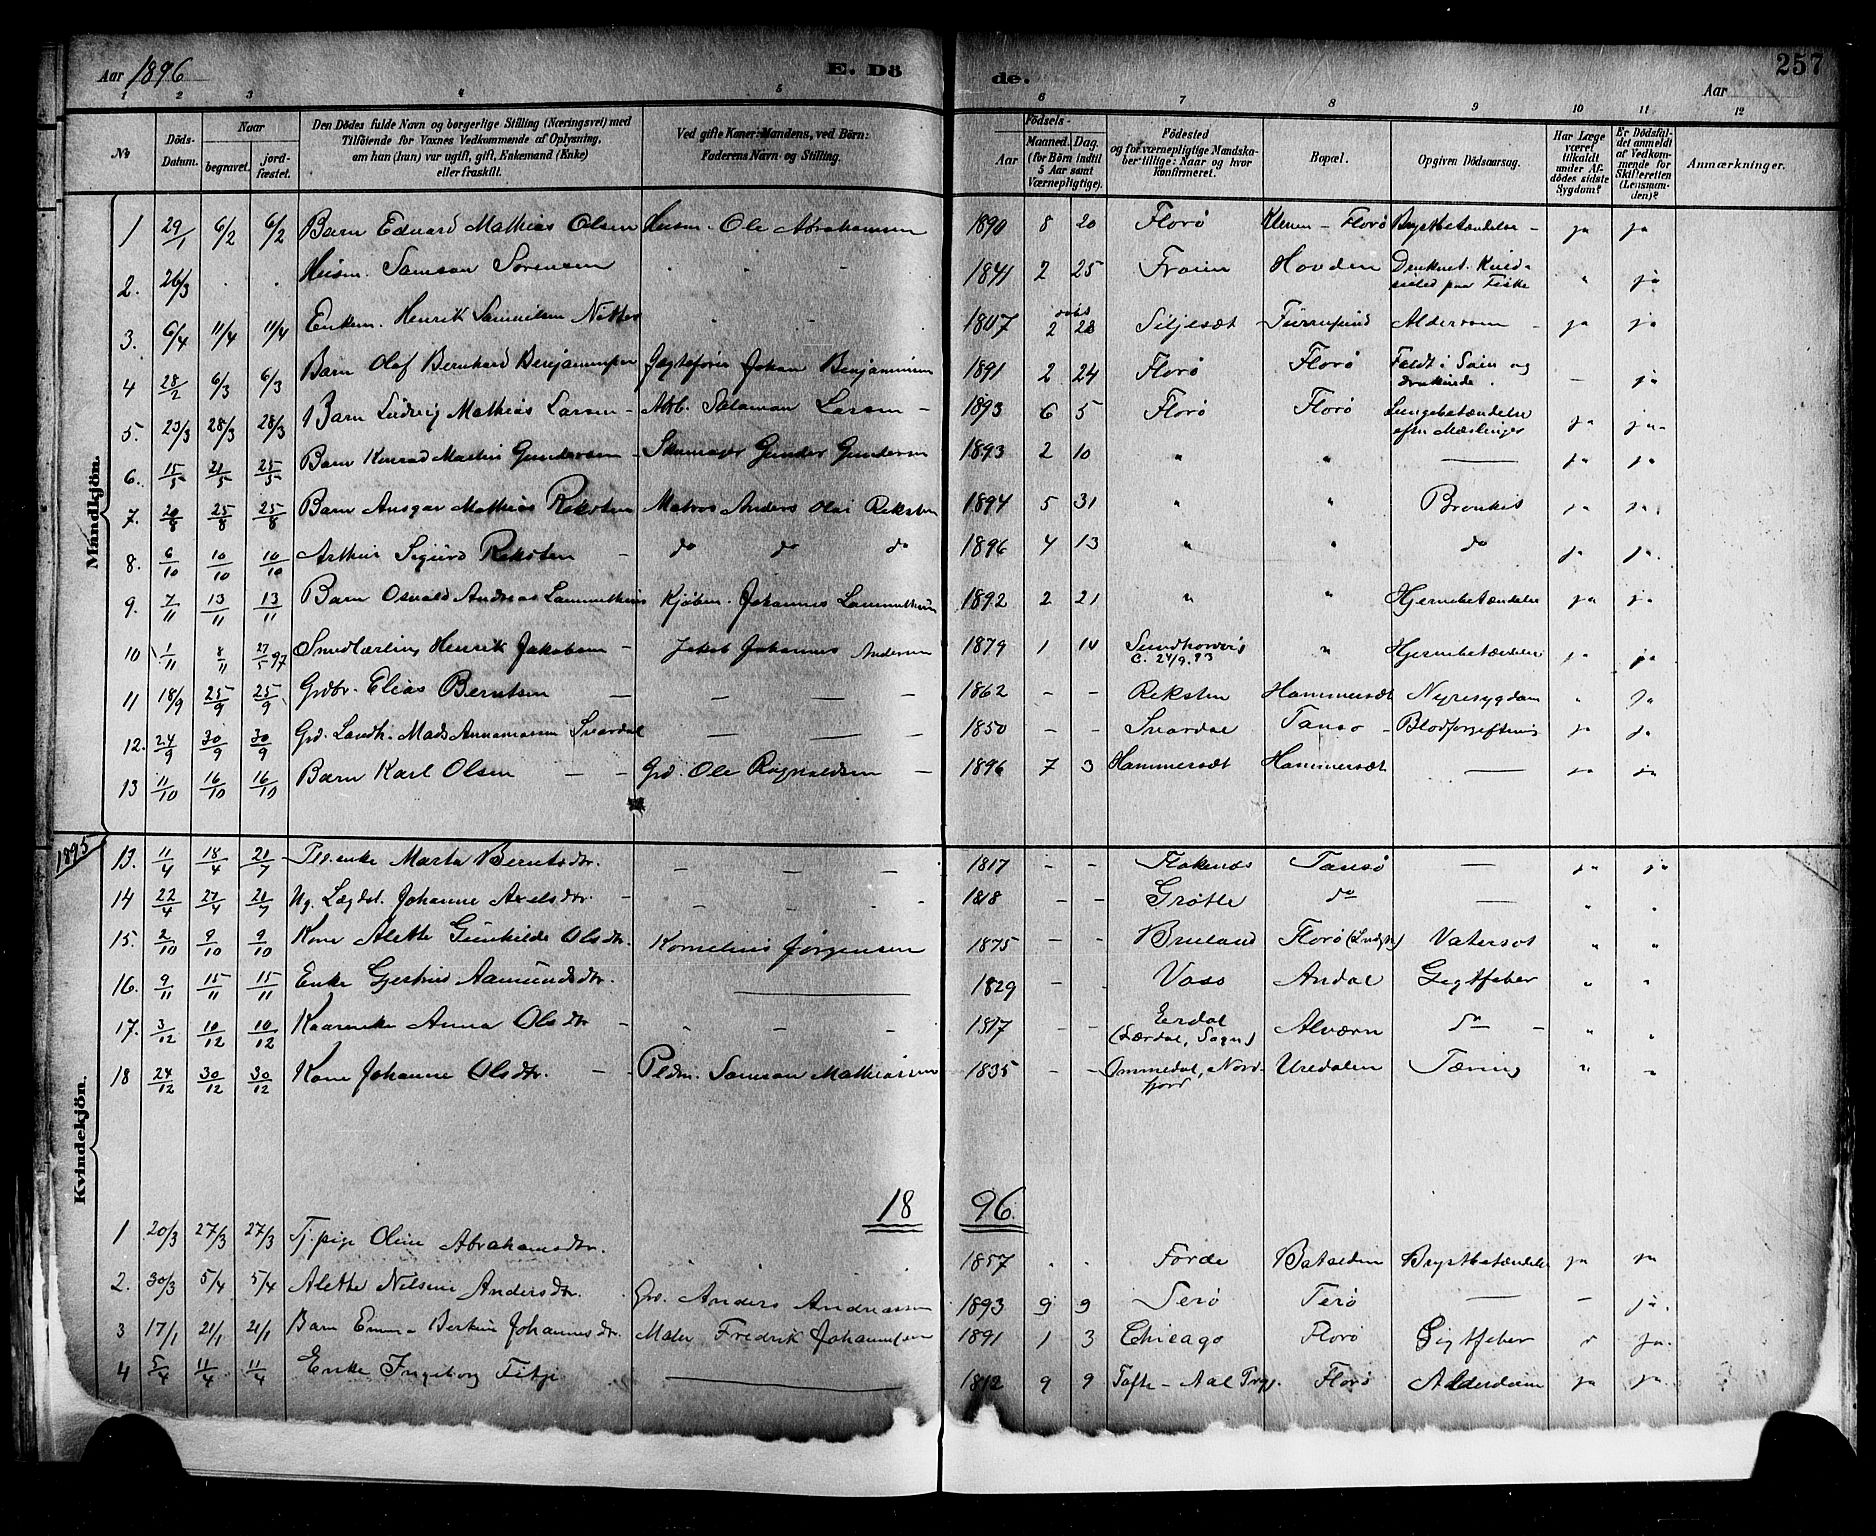 Aar 1896
E. Dö
de.
257
Aar
1 2 3 4 5 6 7 8 9 10 11 12
No
Döds-Datum.
Naar
begravet.
jord-fæstet.
Den Dödes fulde Navn og borgerlige Stilling (Næringsvei) med
Tilföiende for Voxnes Vedkommende af Oplysning,
om han (hun) var ugift, gift, Enkemand (Enke)
eller fraskilt.
Ved gifte Koner: Mandens, ved Börn:
Faderens Navn og Stilling.
Födsels-
Aar
Maaned. Dag.
(for Börn indtil
5 Aar samt
Værnepligtige).
Födested
og for værnepligtige Mandska-
ber tillige: Naar og hvor
konfirmeret.
Bopæl.
Opgiven Dödsaarsag.
Har Læge
været
tilkaldt
under Af-
dödes sidste
Sygdom?
Er Dödsfal-
det anmeldt
af Vedkom-
mende for
Skifteretten
(Lensman-
den)?
Anmærkninger.
Mandkjön.
1 29/1 6/2 6/2 Barn Edvard Mathias Olsen Husm. Ole Abrahamsen 1890 8 20 Florø Florø Brystbetændelse - ja ja
2. 26/3 . . Husm. Samson Sørensen 1841 2 25 Hovden Druknet paa Fiske " ja
3. 6/4 11/4 11/4 Enkem. Henrik 1807 2 28 Siljesæt Alderdom - ja ja
4 28/2 6/3 6/3 Barn Olaf Bernhard Benjaminsen Jagtefører Johan Benjaminsen 1891 2 24 Florø Florø Faldt i Søen og druknede. - ja
5. 23/3 28/3 28/3 Barn Ludvig Mathias Larsen - Arb. Salamon Larsen - 1893 6 5 Florø Florø Lungebetændelse efter Mæslinger ja ja
6. 15/5 21/5 25/5 Barn Konrad Martin Gundersen - Skomager Gunder Gundersen 1893 2 10 " " — ja ja
7. 20/8 25/8 25/8 Barn Ansgar Mathias Reksten Matros Anders Olai Reksten 1894 5 31 " " Bronkit ja ja
8. 6/10 10/10 10/10 Arthur Sigurd Reksten - do do do 1896 4 13 " " do ja ja
9. 7/11 13/11 13/11 Barn Osvald Andreas Kjøbm. Johannes 1892 2 21 " " Hjernebetændelse ja ja
10 1/11 8/11 27/5 97 Smedlærling Henrik Jakobsen - Jakob Johannes Andersen 1879 1 14 C. 24/9. 93 " Hjernebetændelse ja ja
11 18/9 25/9 25/9 Grdbr. Elias Berntsen — — — — 1862 - - Reksten Hammersæt Nyresygdom " ja
12. 24/9 30/9 30/9 Grd. Landh. Mads Svardal — — — 1850 - - Svardal Tansø - Blodforgiftning ja ja
13 11/10 16/10 16/10 Barn Karl Olsen — — Grd. Ole Ragnvaldsen — 1896 7 3 Hammersæt Hammersæt — ja ja
1895
Kvindekjön.
13. 11/4 18/4 21/7 Marta Berntsdtr. — — — 1817 - - Tansø — ja ja
14 22/4 27/4 21/7 Ug. Lægdsl. Johanne Axelsdtr. - - - - 1818 - - Grøtle do — " "
15. 2/10 9/10 9/10 Kone Alette Gunhilde Olsdtr. Kornelius Jørgensen 1875 - - Bruland Florø Vatersot " "
16. 9/11 15/11 15/11 Enke Gjertrud Aamundsdtr. — 1829 - - Voss Ándal Gigtfeber " "
17. 3/12 10/12 10/12 Anna Olsdtr - - - - 1817 - - Erdal (Lærdal, Sogn) Alværn do - " "
18 24/12 30/12 30/12 Kone Johanne Olsdtr. - - Pldm. Samson Mathiassen 1835 - - Ommedal, Nordfjord Uredalen Tæring " "
18 96.
1 20/3 27/3 27/3 Tj.pige Oline Abrahamsdtr. 1857 . . Førde Batalden Brystbetændelse ja ja
2. 30/3 5/4 5/4 Alette Nilsine Andersdtr. Grd. Anders Andreassen 1893 9 9 Terø Terø — - ja
3 17/1 21/1 21/1 Barn Emma Bertine Johannesdtr. Maler Fredrik Johannesen 1891 1 3 Chicago Florø Gigtfeber " ja
4 5/4 11/4 11/4 Enke Ingeborg Fitje — 1812 9 9 Tofte - Florø Alderdom ja ja